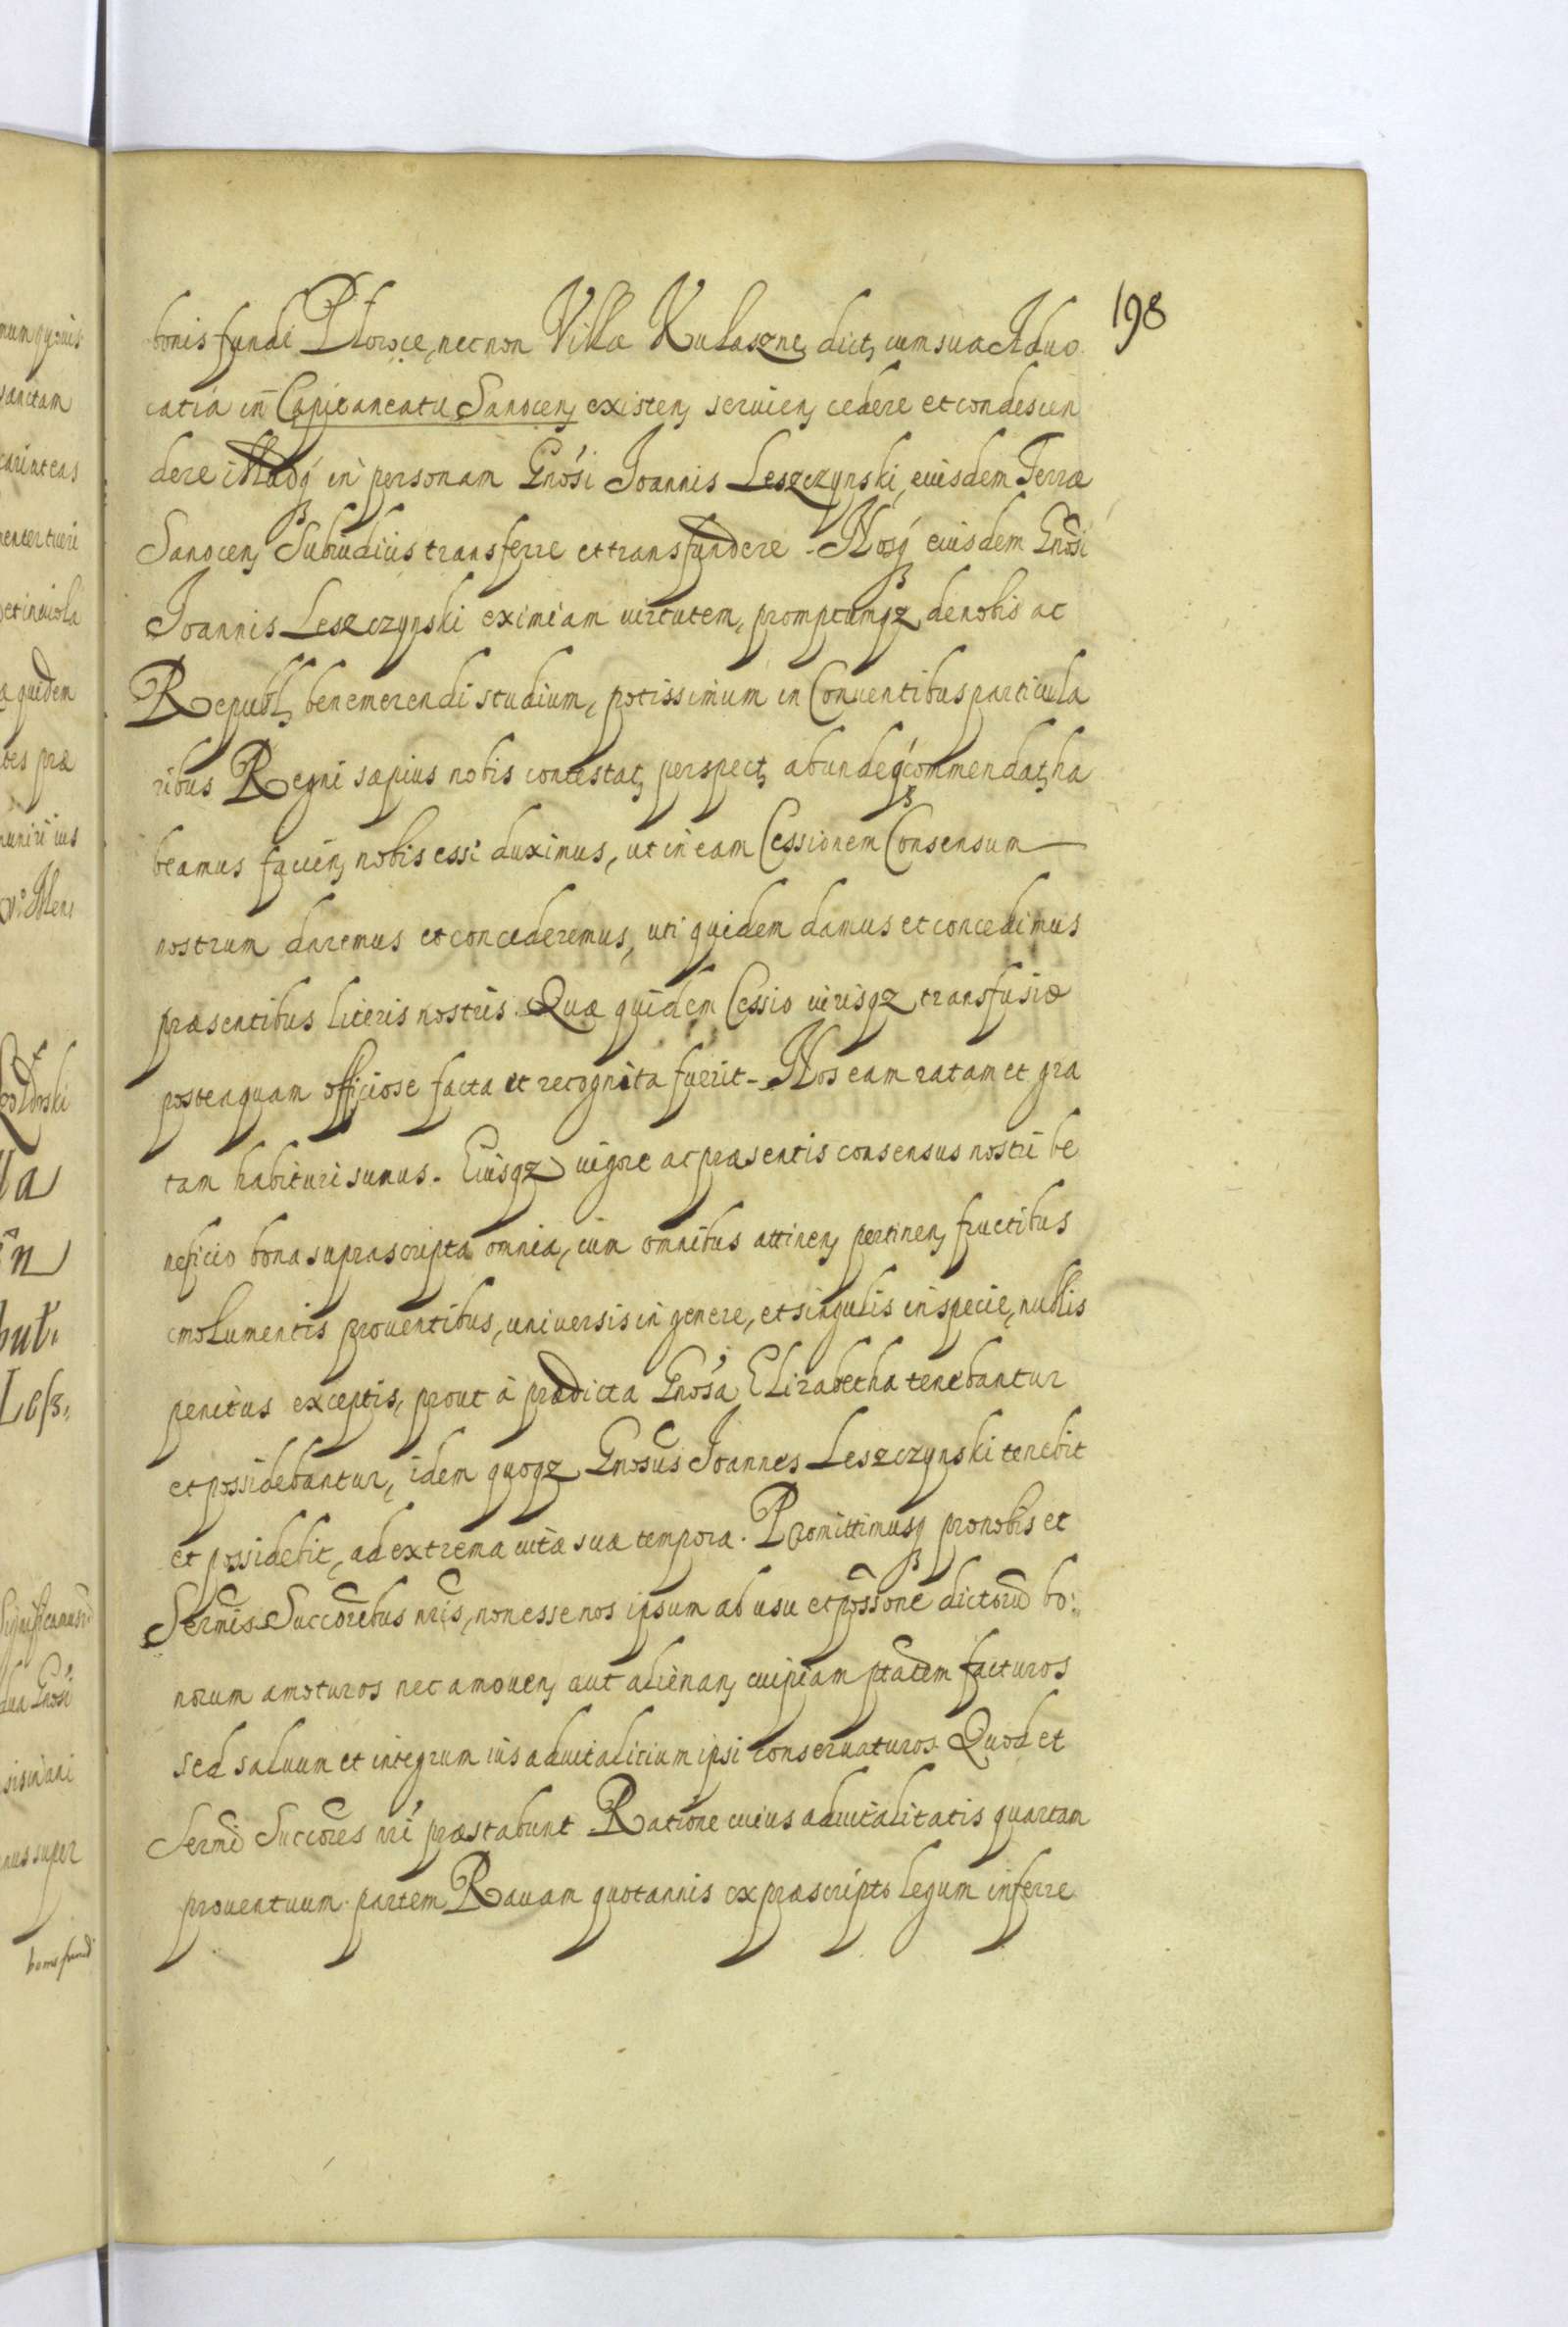 198
bonis fundi Płowce, necnon Villæ Kulaszne dict, cum sua Aduo
catia in Capitaneatu Sanocen existen seruien cedere et condescen
dere illudq in personam Gnosi Joannis Leszczynski eiusdem Terræ
Sanocen Subiudicis transferre et transfundere - Nosq eiusdem Gnosi
Joannis Leszczynski eximiam uirtutem, promptumqz de nobis ac
Republ, benemerendi studium, potissimum in Conuentibus particula
ribus Regni sæpius nobis contestat, perspect, abundeq commendat, ha
beamus facien nobis essi duximus, ut in eam Cessionem Consensum
nostrum daremus et concederemus, uti quidem damus et concedimus
præsentibus literis nostris. Quæ quidem Cessio iurisqz transfusio
posteaquam officiose facta et recognita fuerit - Nos eam ratam et gra
tam habituri sumus. Eiusqz uigore ac præsentis consensus nostri be
neficio bona suprascripta omnia, cum omnibus attinen pertinen fructibus
emolumentis prouentibus, uniuersis in genere, et singulis in specie, nullis
penitus exceptis, prout à prædicta Gnosa Elizabetha tenebantur
et possidebantur, idem quoqz Gnosus Joannes Leszczynski tenebit
et possidebit, ad extrema uitæ suæ tempora. Promittimusq pro nobis et
Sermis Succoribus nris, non esse nos ipsum ab usu et possone dictorum bo:
norum amoturos nec amouen aut alienan cuipiam ptatem facturos
sed saluum et integrum ius aduitalitium ipsi conseruaturos Quod et
Sermi Succores nri præstabunt Ratione cuius aduitalitatis quartam
prouentuum partem Rauam quotannis ex præscripto legum inferre